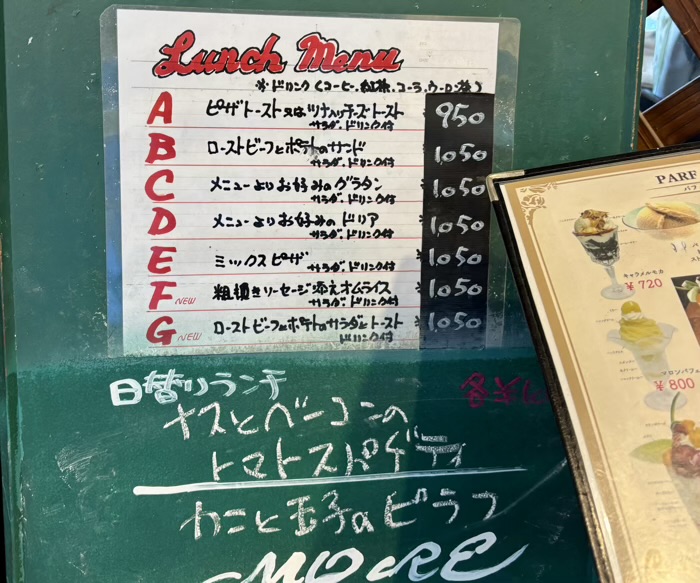 Lunch Menu
※ドリンク(コーヒー、紅茶、コーラ、ウーロン茶)
A ピザトースト又はツナ入りチーズトースト 950
サラダ、ドリンク付
B ローストビーフとポテトのサンド ¥1050
サラダ、ドリンク付
C メニューよりお好みのグラタン ¥1050
サラダ、ドリンク付
D メニューよりお好みのドリア ¥1050
サラダ、ドリンク付
E ミックスピザ ¥1050
サラダ、ドリンク付
F NEW 粗挽きソーセージ添えオムライス ¥1050
サラダ、ドリンク付
G NEW ローストビーフとポテトのサラダとトースト ¥1050
ドリンク付
日替りランチ
ナスとベーコンの
トマトスパゲティ
カニと玉子のピラフ
MORE
PARF
パフ
キャラメルモカ
¥720
マロンパフェ
¥800